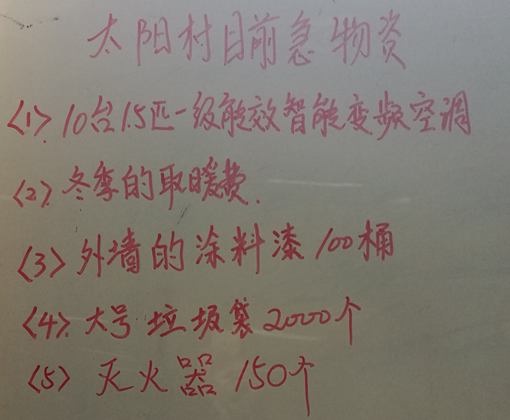 太阳村目前急物资
<1>10台1.5匹一级能效智能变频空调
<2>冬季的取暖费.
<3>外墙的涂料漆100桶
<4>大号垃圾袋2000个
<5>灭火器150个